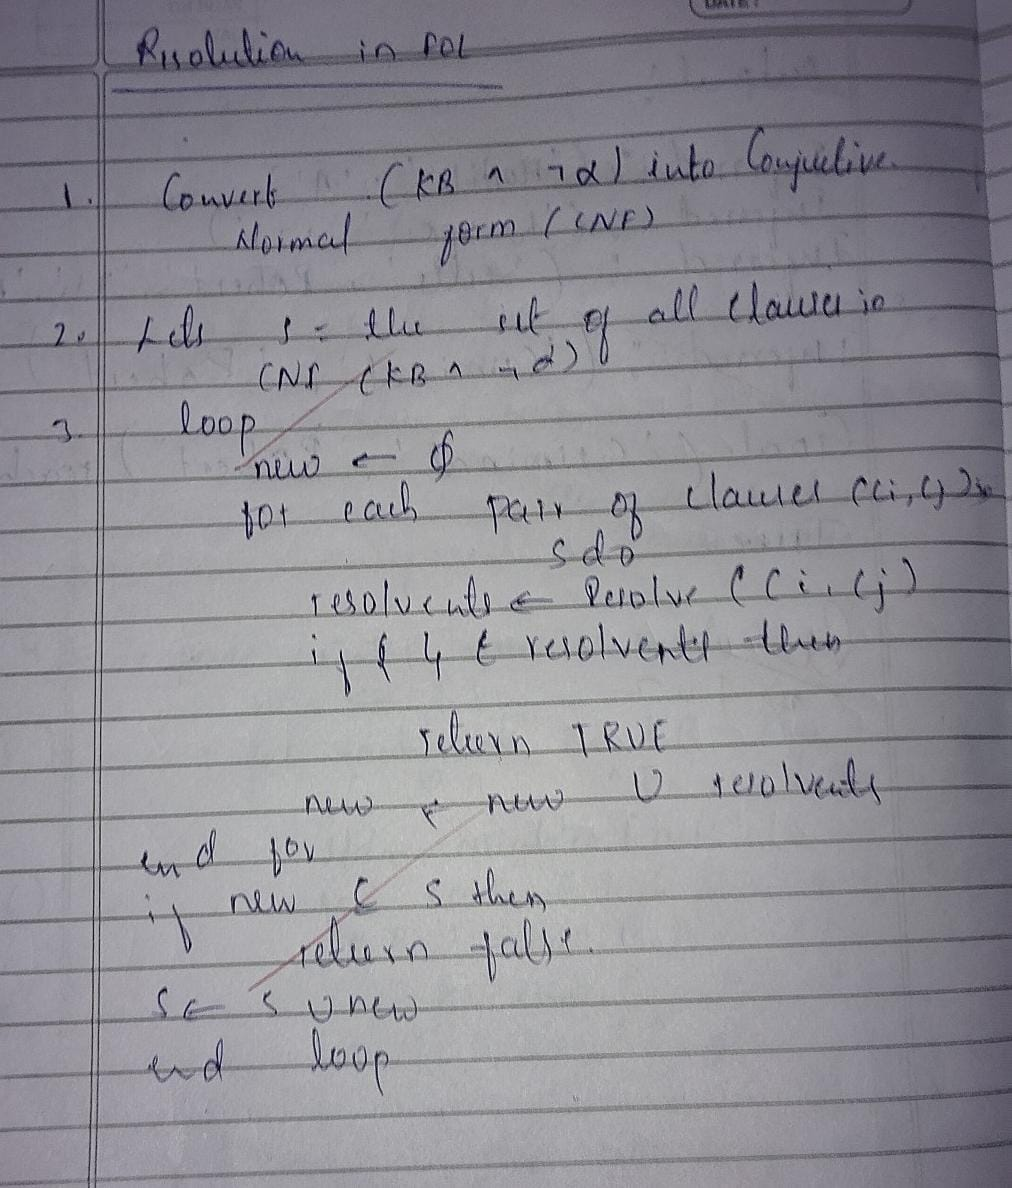 Resolution in FOL
1. Convert (KB ∧ ¬α) into Conjuctive
Normal form (CNF)
2. Lets S = the set of all clauses in
CNF (KB ∧ ¬α)
3. loop
new ← φ
for each pair of clauses (Ci, Cj) in
S do
resolvents ← Resolve (Ci, Cj)
if { } ∈ resolvents then
return TRUE
new ← new ∪ resolvents
end for
if new ⊂ S then
return false.
S ← S ∪ new
end loop